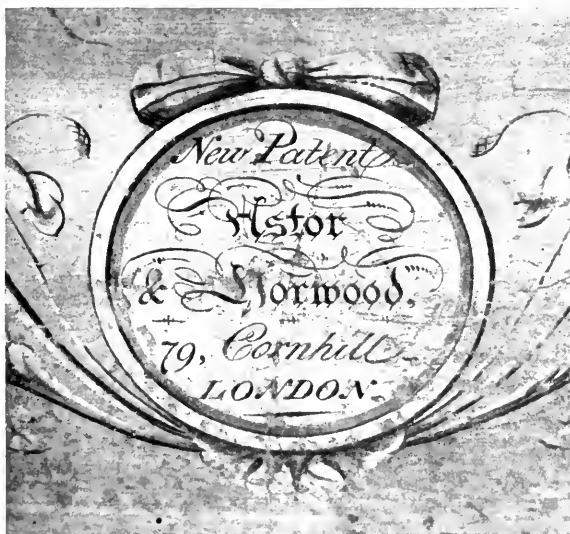 New Patent
Astor
& Horwood,
79, Cornhill
LONDON